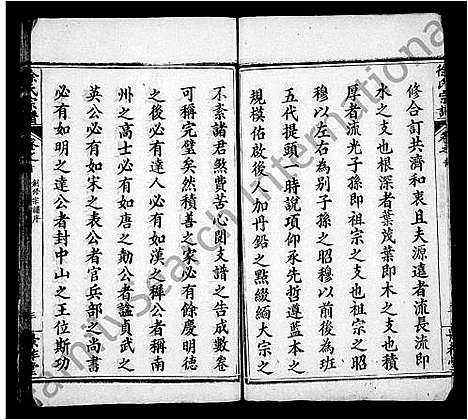 徐氏宗譜
修合訂共濟和衷且夫源遠者流長流即
水之支也根深者葉茂葉即木之支也積
厚者流光子孫即祖宗之支也祖宗之昭
穆以左右為別子孫之昭穆以前後為班
五代提頭一時說項仰承先哲遵藍本之
規模佑啟後人加丹鉛之點綴緬大宗之
不紊諸君煞費苦心閱支譜之告成數卷
可稱完璧矣然積善之家必有餘慶明德
之後必有達人必有如漢之穉公者稱南
州之高士必有如唐之勣公者諡貞武之
英公必有如宋之表公者官兵部之尚書
必有如明之達公者封中山之王位斯功
徐氏宗譜
創修宗譜序